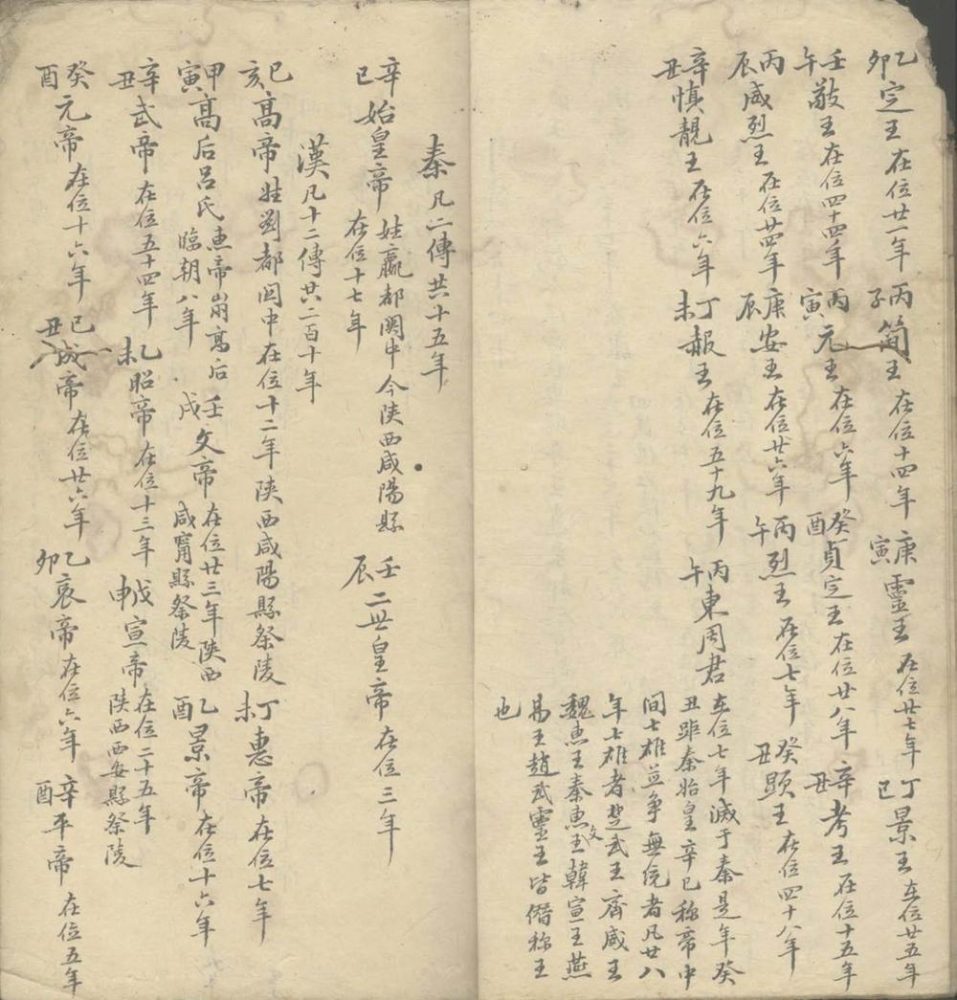 乙卯定王在位廿一年 丙子簡王在位十四年 庚寅靈王在位廿七年 丁巳景王在位廿五年
壬午敬王在位四十四年 丙寅元王在位六年 癸酉貞定王在位廿八年 辛丑考王在位十五年
丙辰威烈王在位廿四年 庚辰安王在位廿六年 丙午烈王在位七年 癸丑顯王在位四十八年
辛丑慎靚王在位六年 丁未赧王在位五十九年 丙午東周君在位七年滅于秦是年癸
丑距秦始皇辛巳称帝中
间七雄並争無統者凡廿八
年七雄者楚武王齊威王
魏惠王秦惠文王韓宣王燕
易王趙武靈王皆僭称王
也
秦凡二傳共十五年
辛巳始皇帝姓嬴都関中今陕西咸陽縣在位十七年 壬辰二世皇帝在位三年
漢凡十二傳共二百十年
己亥高帝姓劉都関中在位十二年陕西咸陽縣祭陵 丁未惠帝在位七年
甲寅高后吕氏惠帝崩高后臨朝八年 壬戌文帝在位廿三年陕西咸寧縣祭陵 乙酉景帝在位十六年
辛丑武帝在位五十四年 乙未昭帝在位十三年 戊申宣帝在位二十五年陕西西安縣祭陵
癸酉元帝在位十六年 己丑成帝在位廿六年 乙卯哀帝在位六年 辛酉平帝在位五年